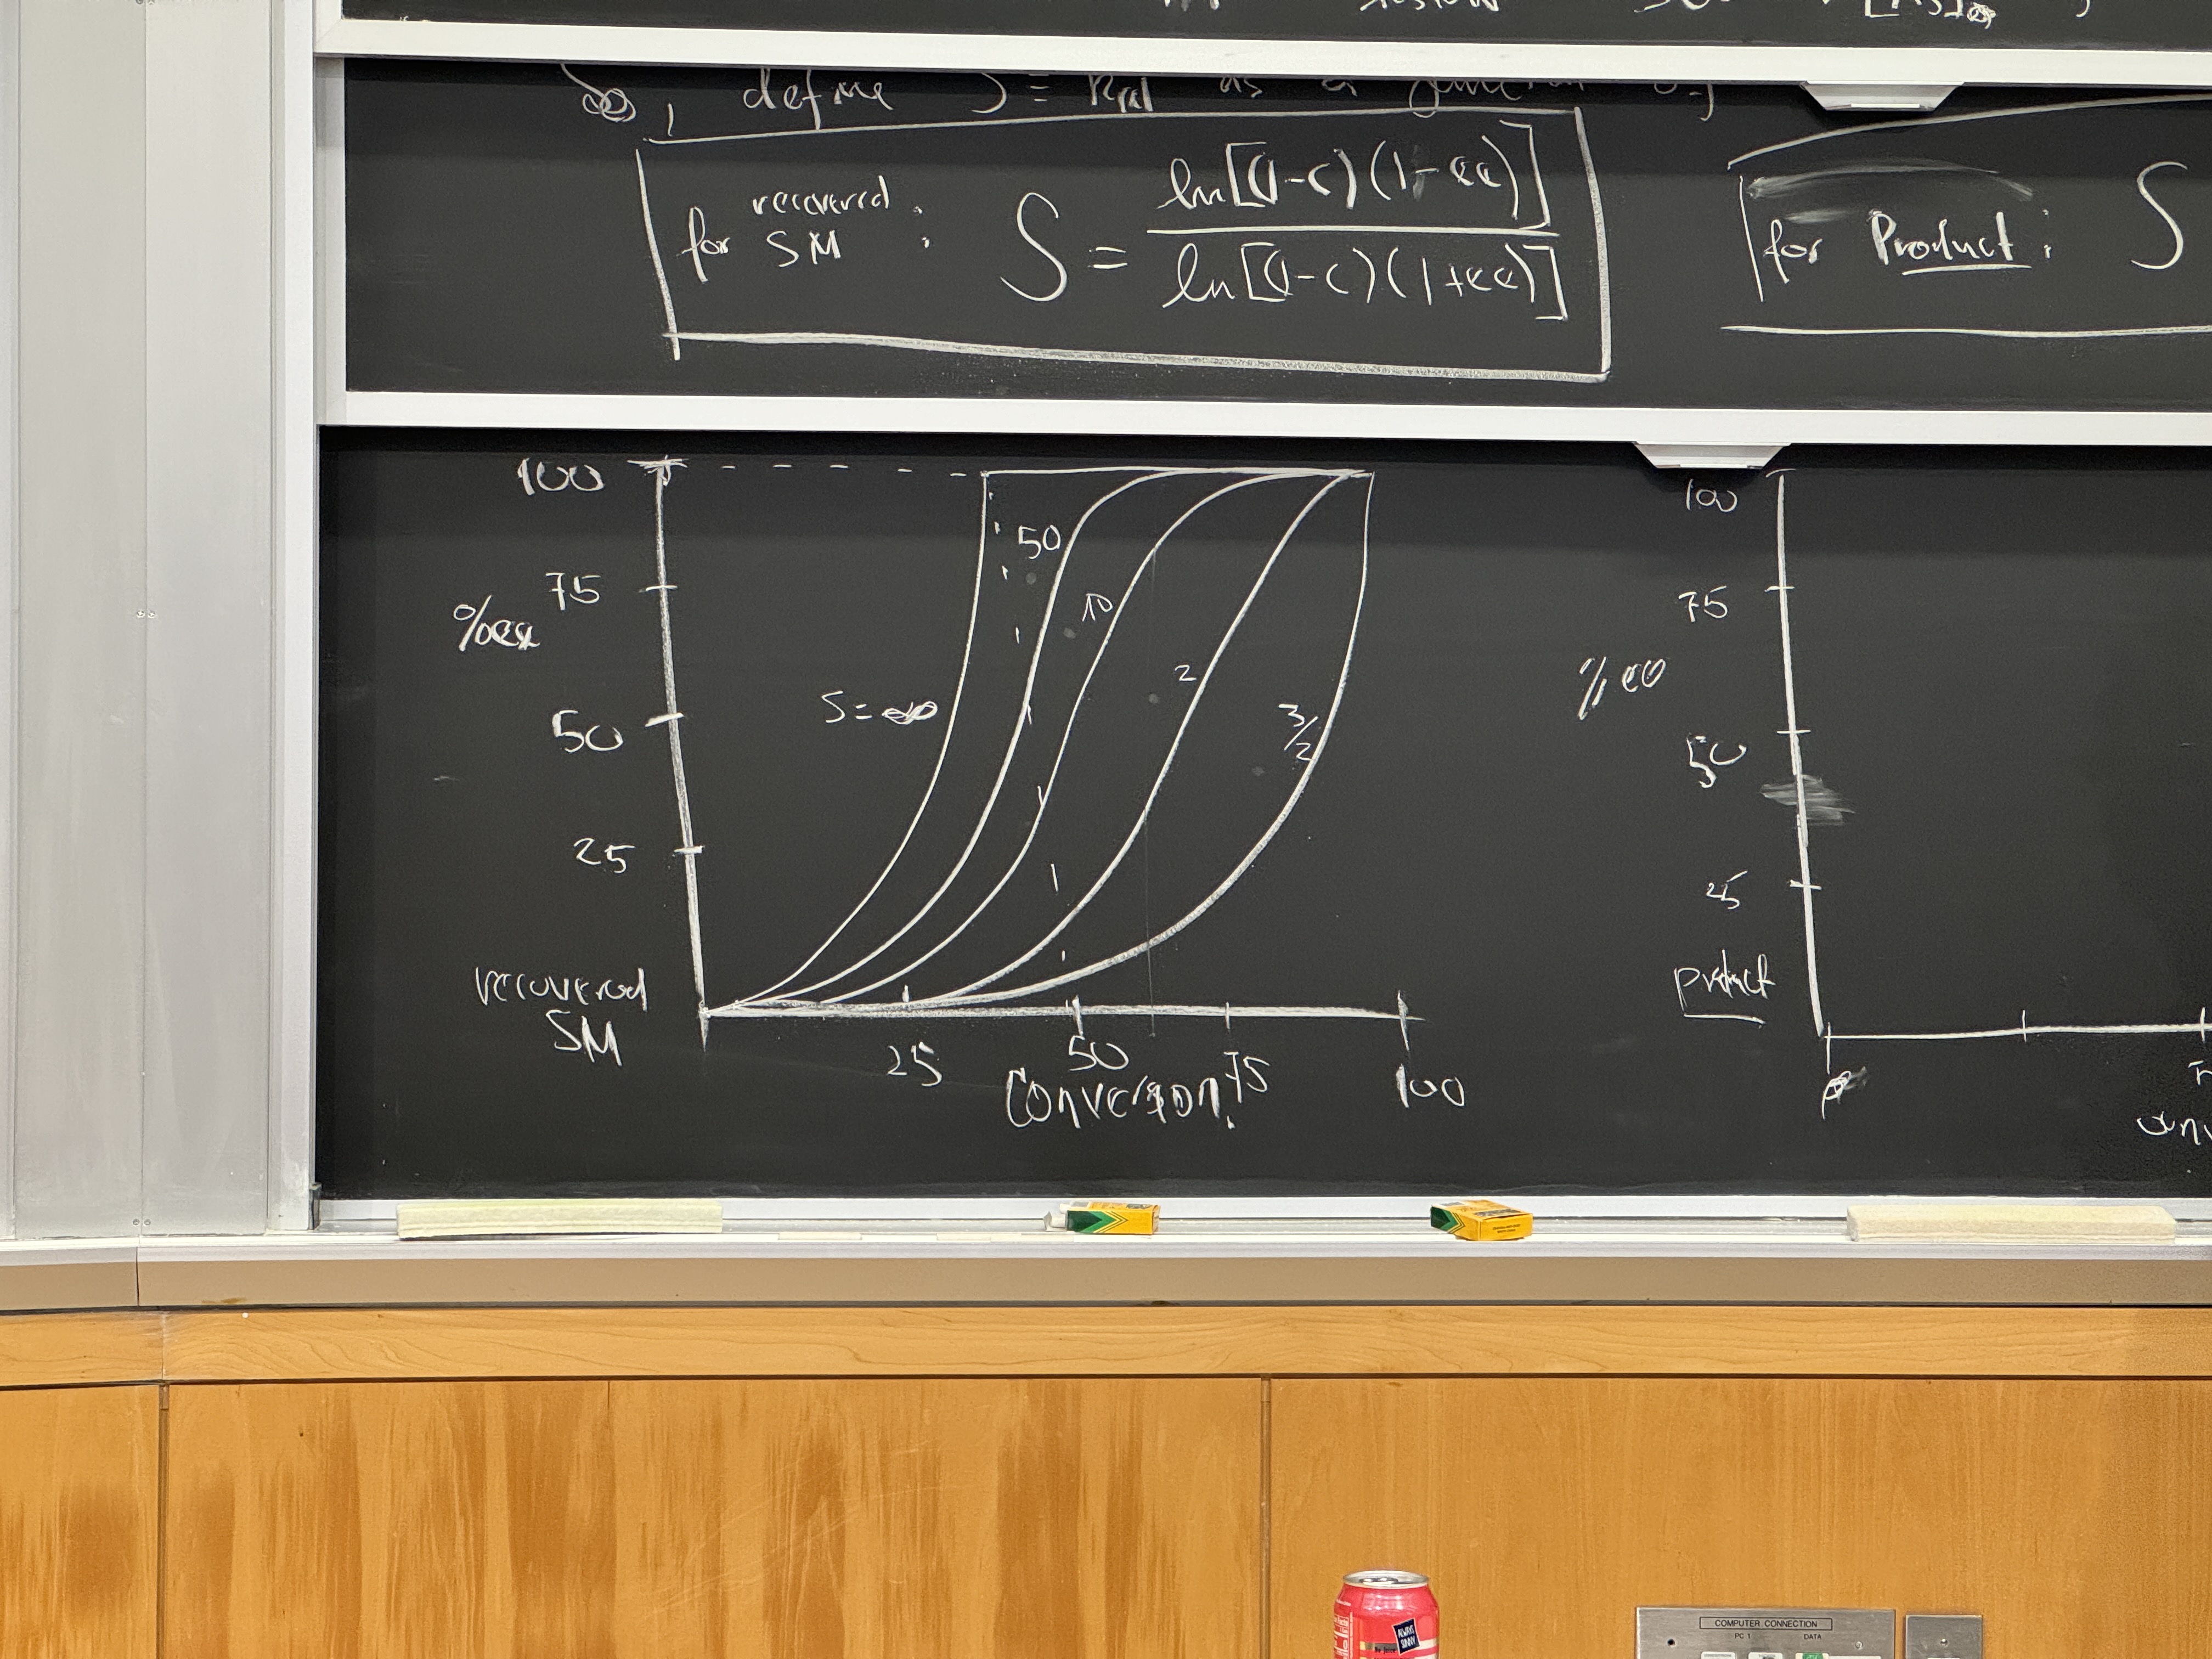 [AS]₀
So, define S = k_rel as a function of
for recovered SM : S = ln[(1-c)(1-ee)] / ln[(1-c)(1+ee)]
for Product : S
100
75
%ee
50
25
recovered
SM
S=∞
50
10
2
3/2
25 50 75 100
Conversion
100
75
% ee
50
25
product
COMPUTER CONNECTION
PC 1 DATA
ALWAYS